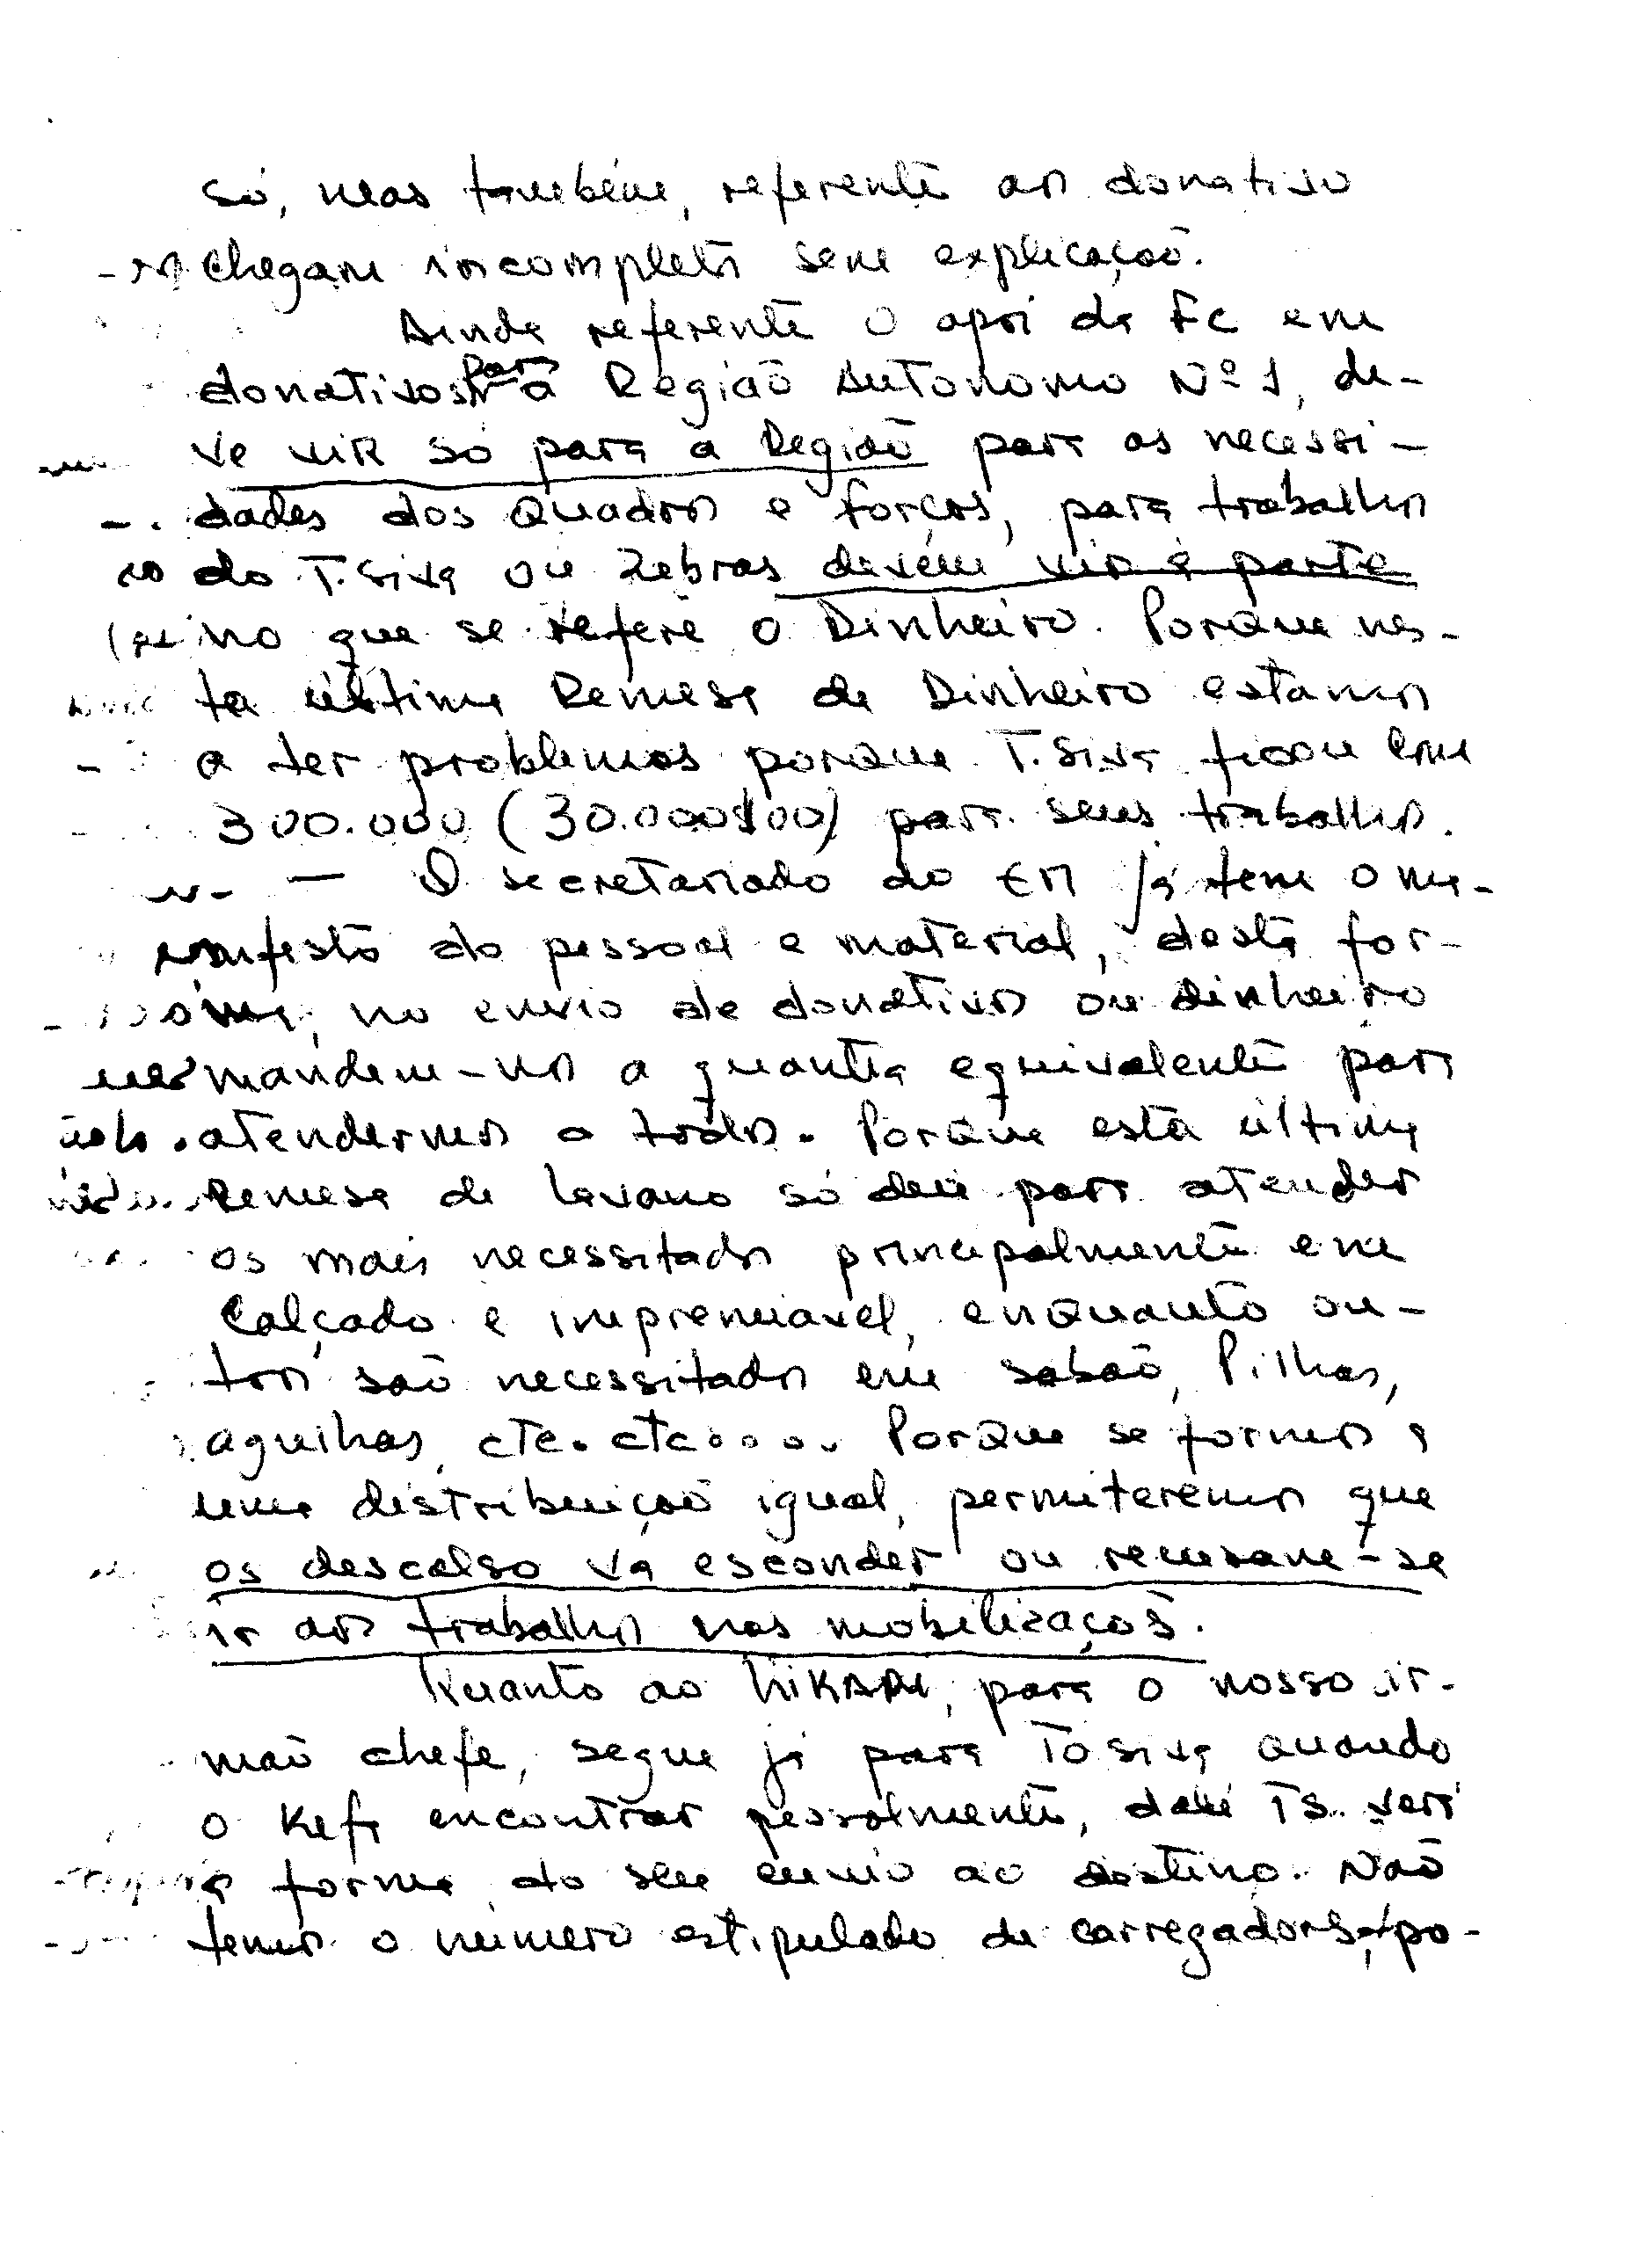 só, mas também, referente aos donativo
chegam incompletos sem explicação.
Ainda referente o apoi da Fc em
donativos para a Região Autonomo Nº 1, de-
ve vir só para a Região para as necessi-
dades dos Quadros e forças, para trabalhos
do T. Siva ou Zebras devem vir à parte
no que se refere o Dinheiro. Porque nes-
ta última Remesa de Dinheiro estamos
a ter problemas porque T. Siva ficou com
300.000 (30.000$00) para seus trabalhos.
— O secretariado do EM já tem o ma-
nifesto do pessoal e material, desta for-
ma, no envio de donativos ou dinheiro
mandem-nos a quantia equivalente para
atendermos a todos. Porque esta última
Remesa de Lavano só deu para atender
os mais necessitados principalmente em
Calçado e impremiavel, enquanto ou-
tros são necessitados em sabão, Pilhas,
agulhas, etc. etc.... Porque se formos a
uma distribuição igual, permiteremos que
os descalso va esconder ou recusam-se
ir aos trabalhos nas mobilizaços.
Quanto ao, para o nosso ir-
mão chefe, segue já para To Siva quando
o Kefa encontrar pessoalmente, dali TS. vera
a forma do seu envio ao destino. Não
temos o número estipulado de carregadores, po-